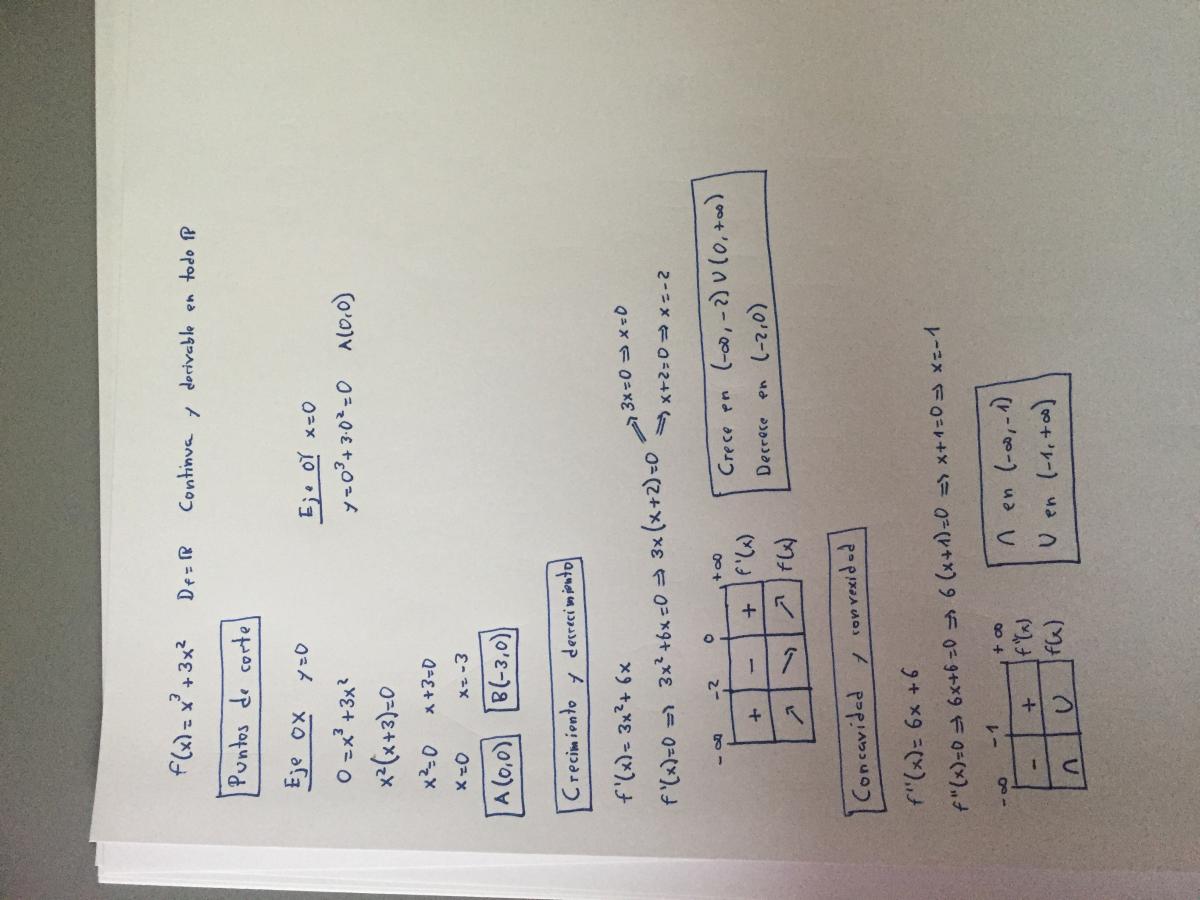 f(x)=x³+3x² Df=ℝ Continua y derivable en todo ℝ
Puntos de corte
Eje OX y=0 Eje OY x=0
0=x³+3x² y=0³+3·0²=0 A(0,0)
x²(x+3)=0
x²=0 x+3=0
x=0 x=-3
A(0,0) B(-3,0)
Crecimiento y decrecimiento
f'(x)=3x²+6x
f'(x)=0 ⇒ 3x²+6x=0 ⇒ 3x(x+2)=0 ⇒ 3x=0 ⇒ x=0
⇒ x+2=0 ⇒ x=-2
-∞ -2 0 +∞
+ - + f'(x)
↗ ↘ ↗ f(x)
Crece en (-∞,-2) ∪ (0,+∞)
Decrece en (-2,0)
Concavidad y convexidad
f''(x)=6x+6
f''(x)=0 ⇒ 6x+6=0 ⇒ 6(x+1)=0 ⇒ x+1=0 ⇒ x=-1
-∞ -1 +∞
- + f''(x)
∩ ∪ f(x)
∩ en (-∞,-1)
∪ en (-1,+∞)